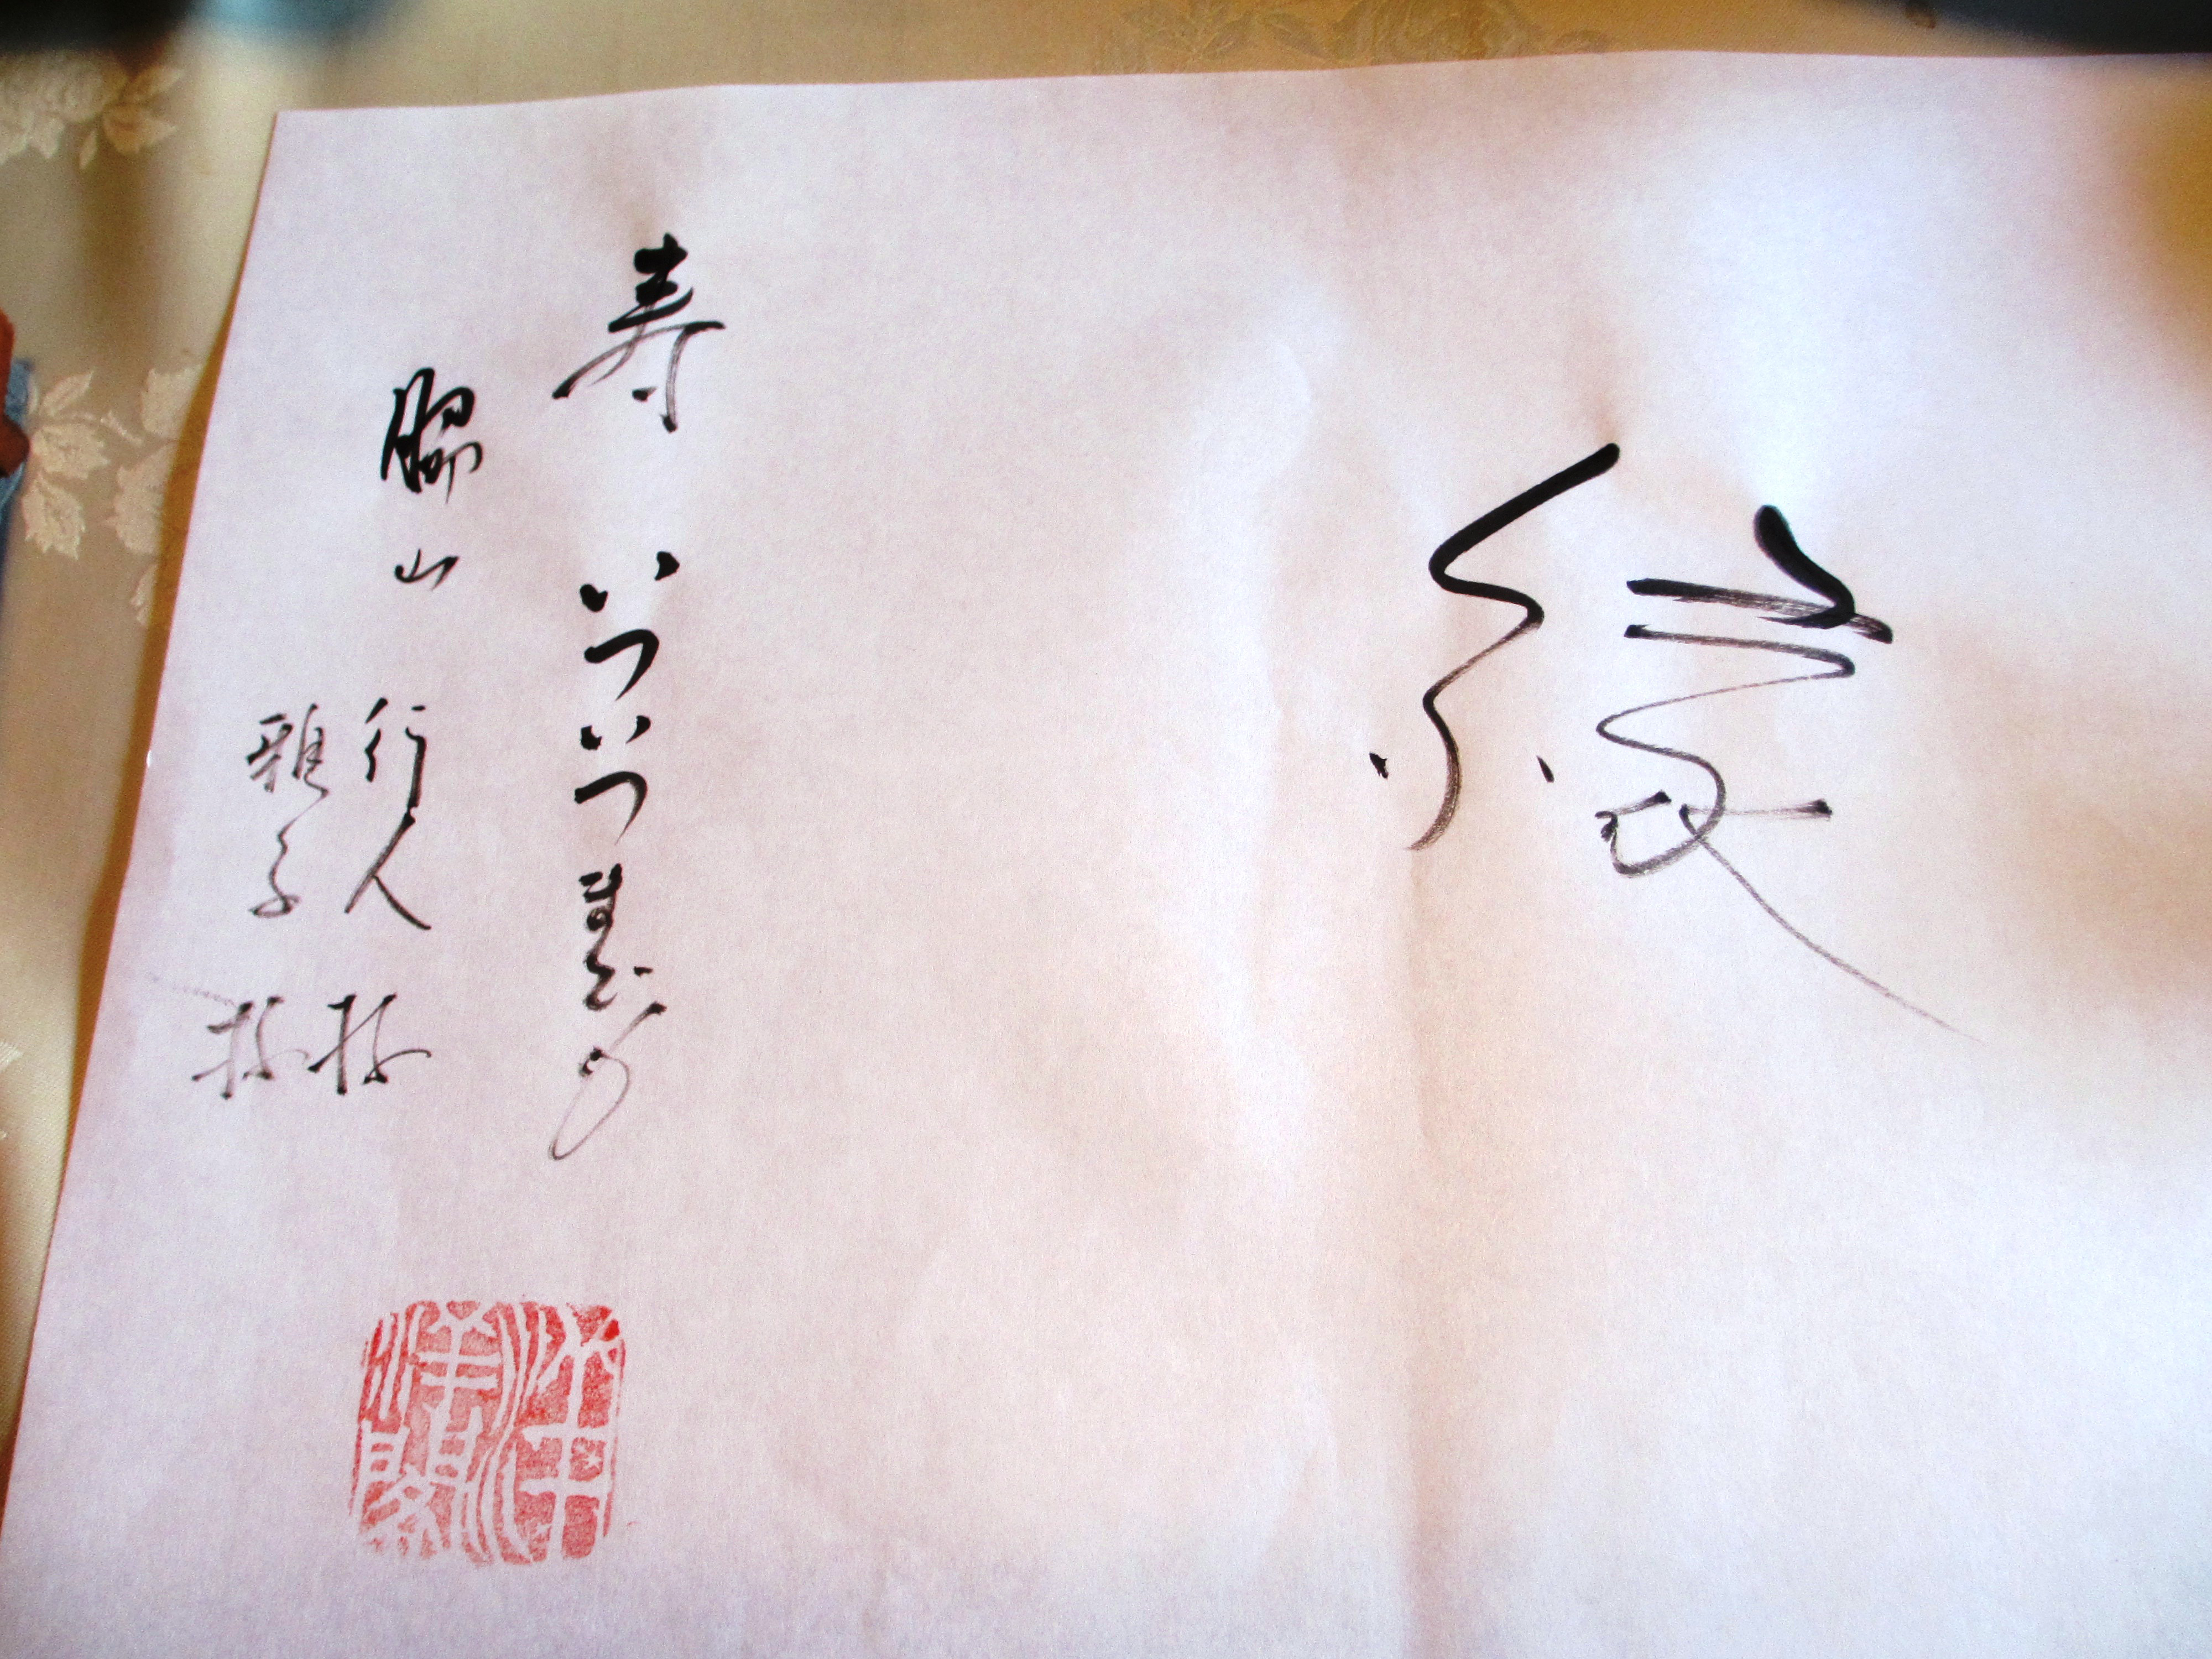 縁
寿 いついつまでも
脇山 行人 様
雅子 様